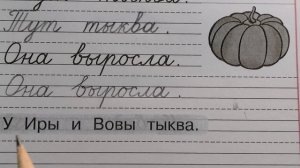 Тут тыква.
Она выросла.
Она выросла.
У Иры и Вовы тыква.